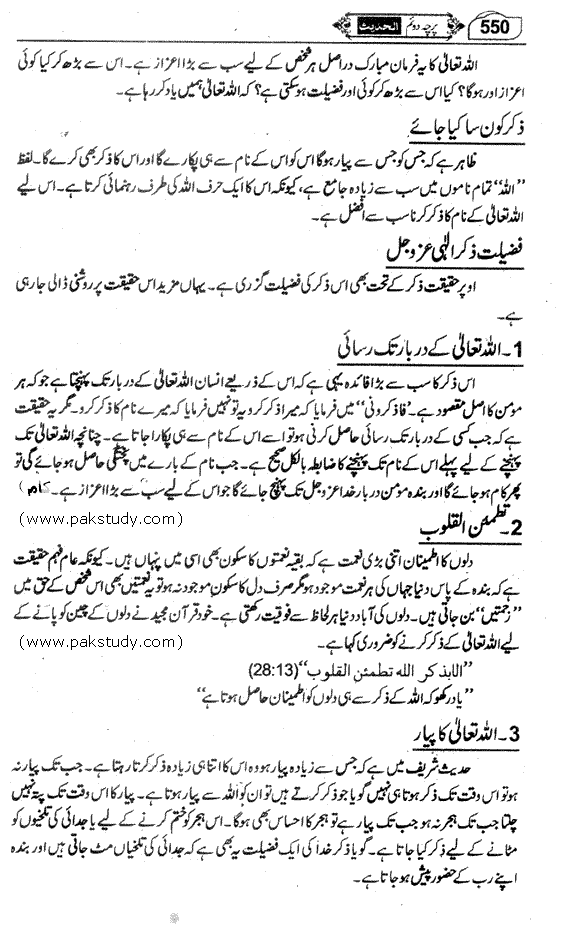 550 پرچہ دوئم الحدیث
اللہ تعالیٰ کا یہ فرمان مبارک دراصل ہر شخص کے لیے سب سے بڑا اعزاز ہے۔ اس سے بڑھ کر کیا کوئی
اعزاز اور ہوگا؟ کیا اس سے بڑھ کر کوئی اور فضیلت ہوسکتی ہے؟ کہ اللہ تعالیٰ ہمیں یاد کر رہا ہے۔
ذکر کون سا کیا جائے
ظاہر ہے کہ جس کو جس سے پیار ہوگا اس کو اس کے نام سے ہی پکارے گا اور اس کا ذکر بھی کرے گا۔ لفظ
”اللہ“ تمام ناموں میں سب سے زیادہ جامع ہے، کیونکہ اس کا ایک حرف اللہ کی طرف رہنمائی کرتا ہے۔ اس لیے
اللہ تعالیٰ کے نام کا ذکر کرنا سب سے افضل ہے۔
فضیلت ذکر الٰہی عزوجل
اوپر حقیقت ذکر کے تحت بھی اس ذکر کی فضیلت گزری ہے۔ یہاں مزید اس حقیقت پر روشنی ڈالی جا رہی
ہے۔
1۔ اللہ تعالیٰ کے دربار تک رسائی
اس ذکر کا سب سے بڑا فائدہ یہی ہے کہ اس کے ذریعے انسان اللہ تعالیٰ کے دربار تک پہنچتا ہے جو کہ ہر
مومن کا اصل مقصود ہے۔ ”فاذکرونی“ میں فرمایا کہ میرا ذکر کرو یہ تو نہیں فرمایا کہ میرے نام کا ذکر کرو۔ مگر یہ حقیقت
ہے کہ جب کسی کے دربار تک رسائی حاصل کرنی ہو تو اسے اس کے نام سے ہی پکارا جاتا ہے۔ چنانچہ اللہ تعالیٰ تک
پہنچنے کے لیے پہلے اس کے نام تک پہنچنے کا ضابطہ بالکل صحیح ہے۔ جب نام کے بارے میں پختگی حاصل ہو جائے گی تو
پھر کام ہو جائے گا اور بندہ مومن دربار خدا عزوجل تک پہنچ جائے گا جو اس کے لیے سب سے بڑا اعزاز ہے۔
(www.pakstudy.com)
2۔ تطمئن القلوب
دلوں کا اطمینان اتنی بڑی نعمت ہے کہ بقیہ نعمتوں کا سکون بھی اسی میں پنہاں ہیں۔ کیونکہ عام فہم حقیقت
ہے کہ بندہ کے پاس دنیا جہاں کی ہر نعمت موجود ہو مگر صرف دل کا سکون موجود نہ ہو تو یہ نعمتیں بھی اس شخص کے حق میں
”زحمتیں“ بن جاتی ہیں۔ دلوں کی آباد دنیا ہر لحاظ سے فوقیت رکھتی ہے۔ خود قرآن مجید نے دلوں کے چین کو پانے کے
لیے اللہ تعالیٰ کے ذکر کرنے کو ضروری کہا ہے۔
(www.pakstudy.com)
”الابذکر اللہ تطمئن القلوب“ (28:13)
”یاد رکھو کہ اللہ کے ذکر سے ہی دلوں کو اطمینان حاصل ہوتا ہے“
3۔ اللہ تعالیٰ کا پیار
حدیث شریف میں ہے کہ جس سے زیادہ پیار ہو وہ اس کا اتنا ہی زیادہ ذکر کرتا رہتا ہے۔ جب تک پیار نہ
ہو تو اس وقت تک ذکر ہوتا ہی نہیں گویا جو ذکر کرتے ہیں تو ان کو اللہ سے پیار ہوتا ہے۔ پیار کا اس وقت تک پتہ نہیں
چلتا جب تک ہجر نہ ہو جب تک پیار ہے تو ہجر کا احساس بھی ہوگا۔ اس ہجر کو ختم کرنے کے لیے یا جدائی کی تلخیوں کو
مٹانے کے لیے ذکر کیا جاتا ہے۔ گویا ذکر خدا کی ایک فضیلت یہ بھی ہے کہ جدائی کی تلخیاں مٹ جاتی ہیں اور بندہ
اپنے رب کے حضور پیش ہو جاتا ہے۔